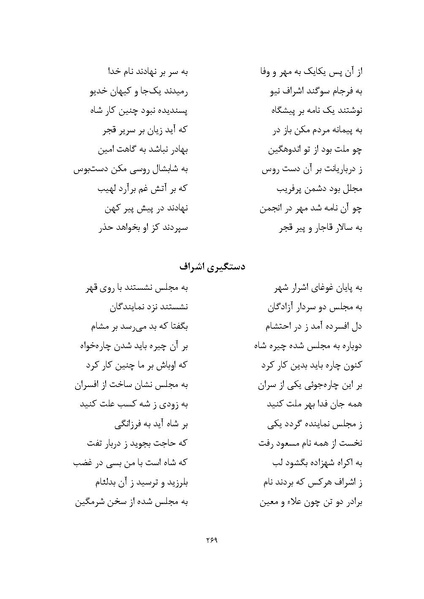 از آن پس یکایک به مهر و وفا به سر بر نهادند نام خدا
به فرجام سوگند اشراف نیو رمیدند یک‌جا و کیهان خدیو
نوشتند یک نامه بر پیشگاه پسندیده نبود چنین کار شاه
به پیمانه مردم مکن باز در که آید زیان بر سریر قجر
چو ملت بود از تو اندوهگین بهادر نباشد به گاهت امین
ز درباریانت بر آن دست روس به شابشال روسی مکن دست‌بوس
مجلل بود دشمن پرفریب که بر آتش غم برآرد لهیب
چو آن نامه شد مهر در انجمن نهادند در پیش پیر کهن
به سالار قاجار و پیر قجر سپردند کز او بخواهد حذر
دستگیری اشراف
به پایان غوغای اشرار شهر به مجلس نشستند با روی قهر
به مجلس دو سردار آزادگان نشستند نزد نمایندگان
دل افسرده آمد ز در احتشام بگفتا که بد می‌رسد بر مشام
دوباره به مجلس شده چیره شاه بر آن چیره باید شدن چاره‌خواه
کنون چاره باید بدین کار کرد که اوباش بر ما چنین کار کرد
بر این چاره‌جوئی یکی از سران به مجلس نشان ساخت از افسران
همه جان فدا بهر ملت کنید به زودی ز شه کسب علت کنید
ز مجلس نماینده گردد یکی بر شاه آید به فرزانگی
نخست از همه نام مسعود رفت که حاجت بجوید ز دربار تفت
به اکراه شهزاده بگشود لب که شاه است با من بسی در غضب
ز اشراف هرکس که بردند نام بلرزید و ترسید ز آن بدلئام
برادر دو تن چون علاء و معین به مجلس شده از سخن شرمگین
۲۶۹